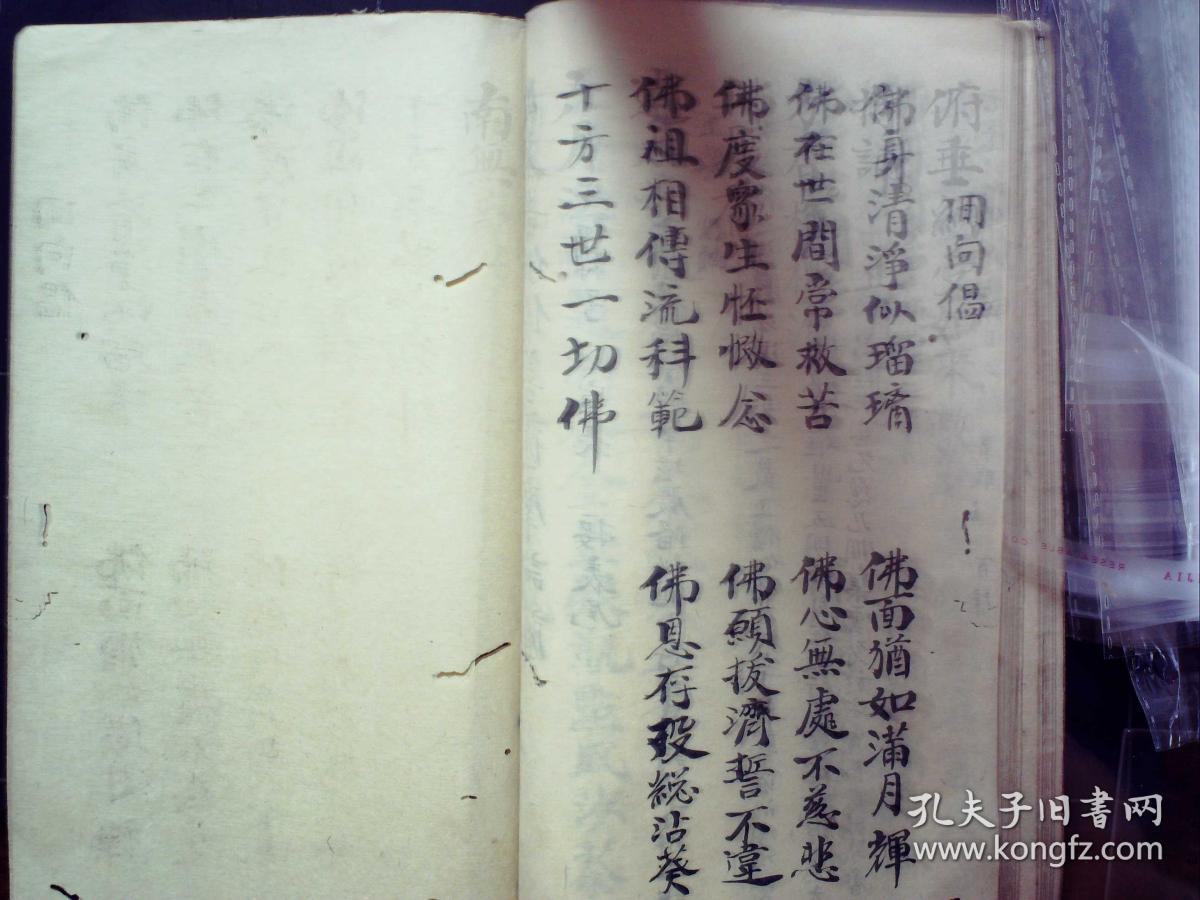 俯垂
囬向偈
佛身清淨似瑠璃
佛面猶如滿月輝
佛在世間常救苦
佛心無處不慈悲
佛度衆生怌愍念
佛願拔濟誓不違
佛祖相傳流科範
佛恩存殁総沾葵
十方三世一切佛
南無
孔夫子旧书网
www.kongfz.com
RESEALABLE
JIA